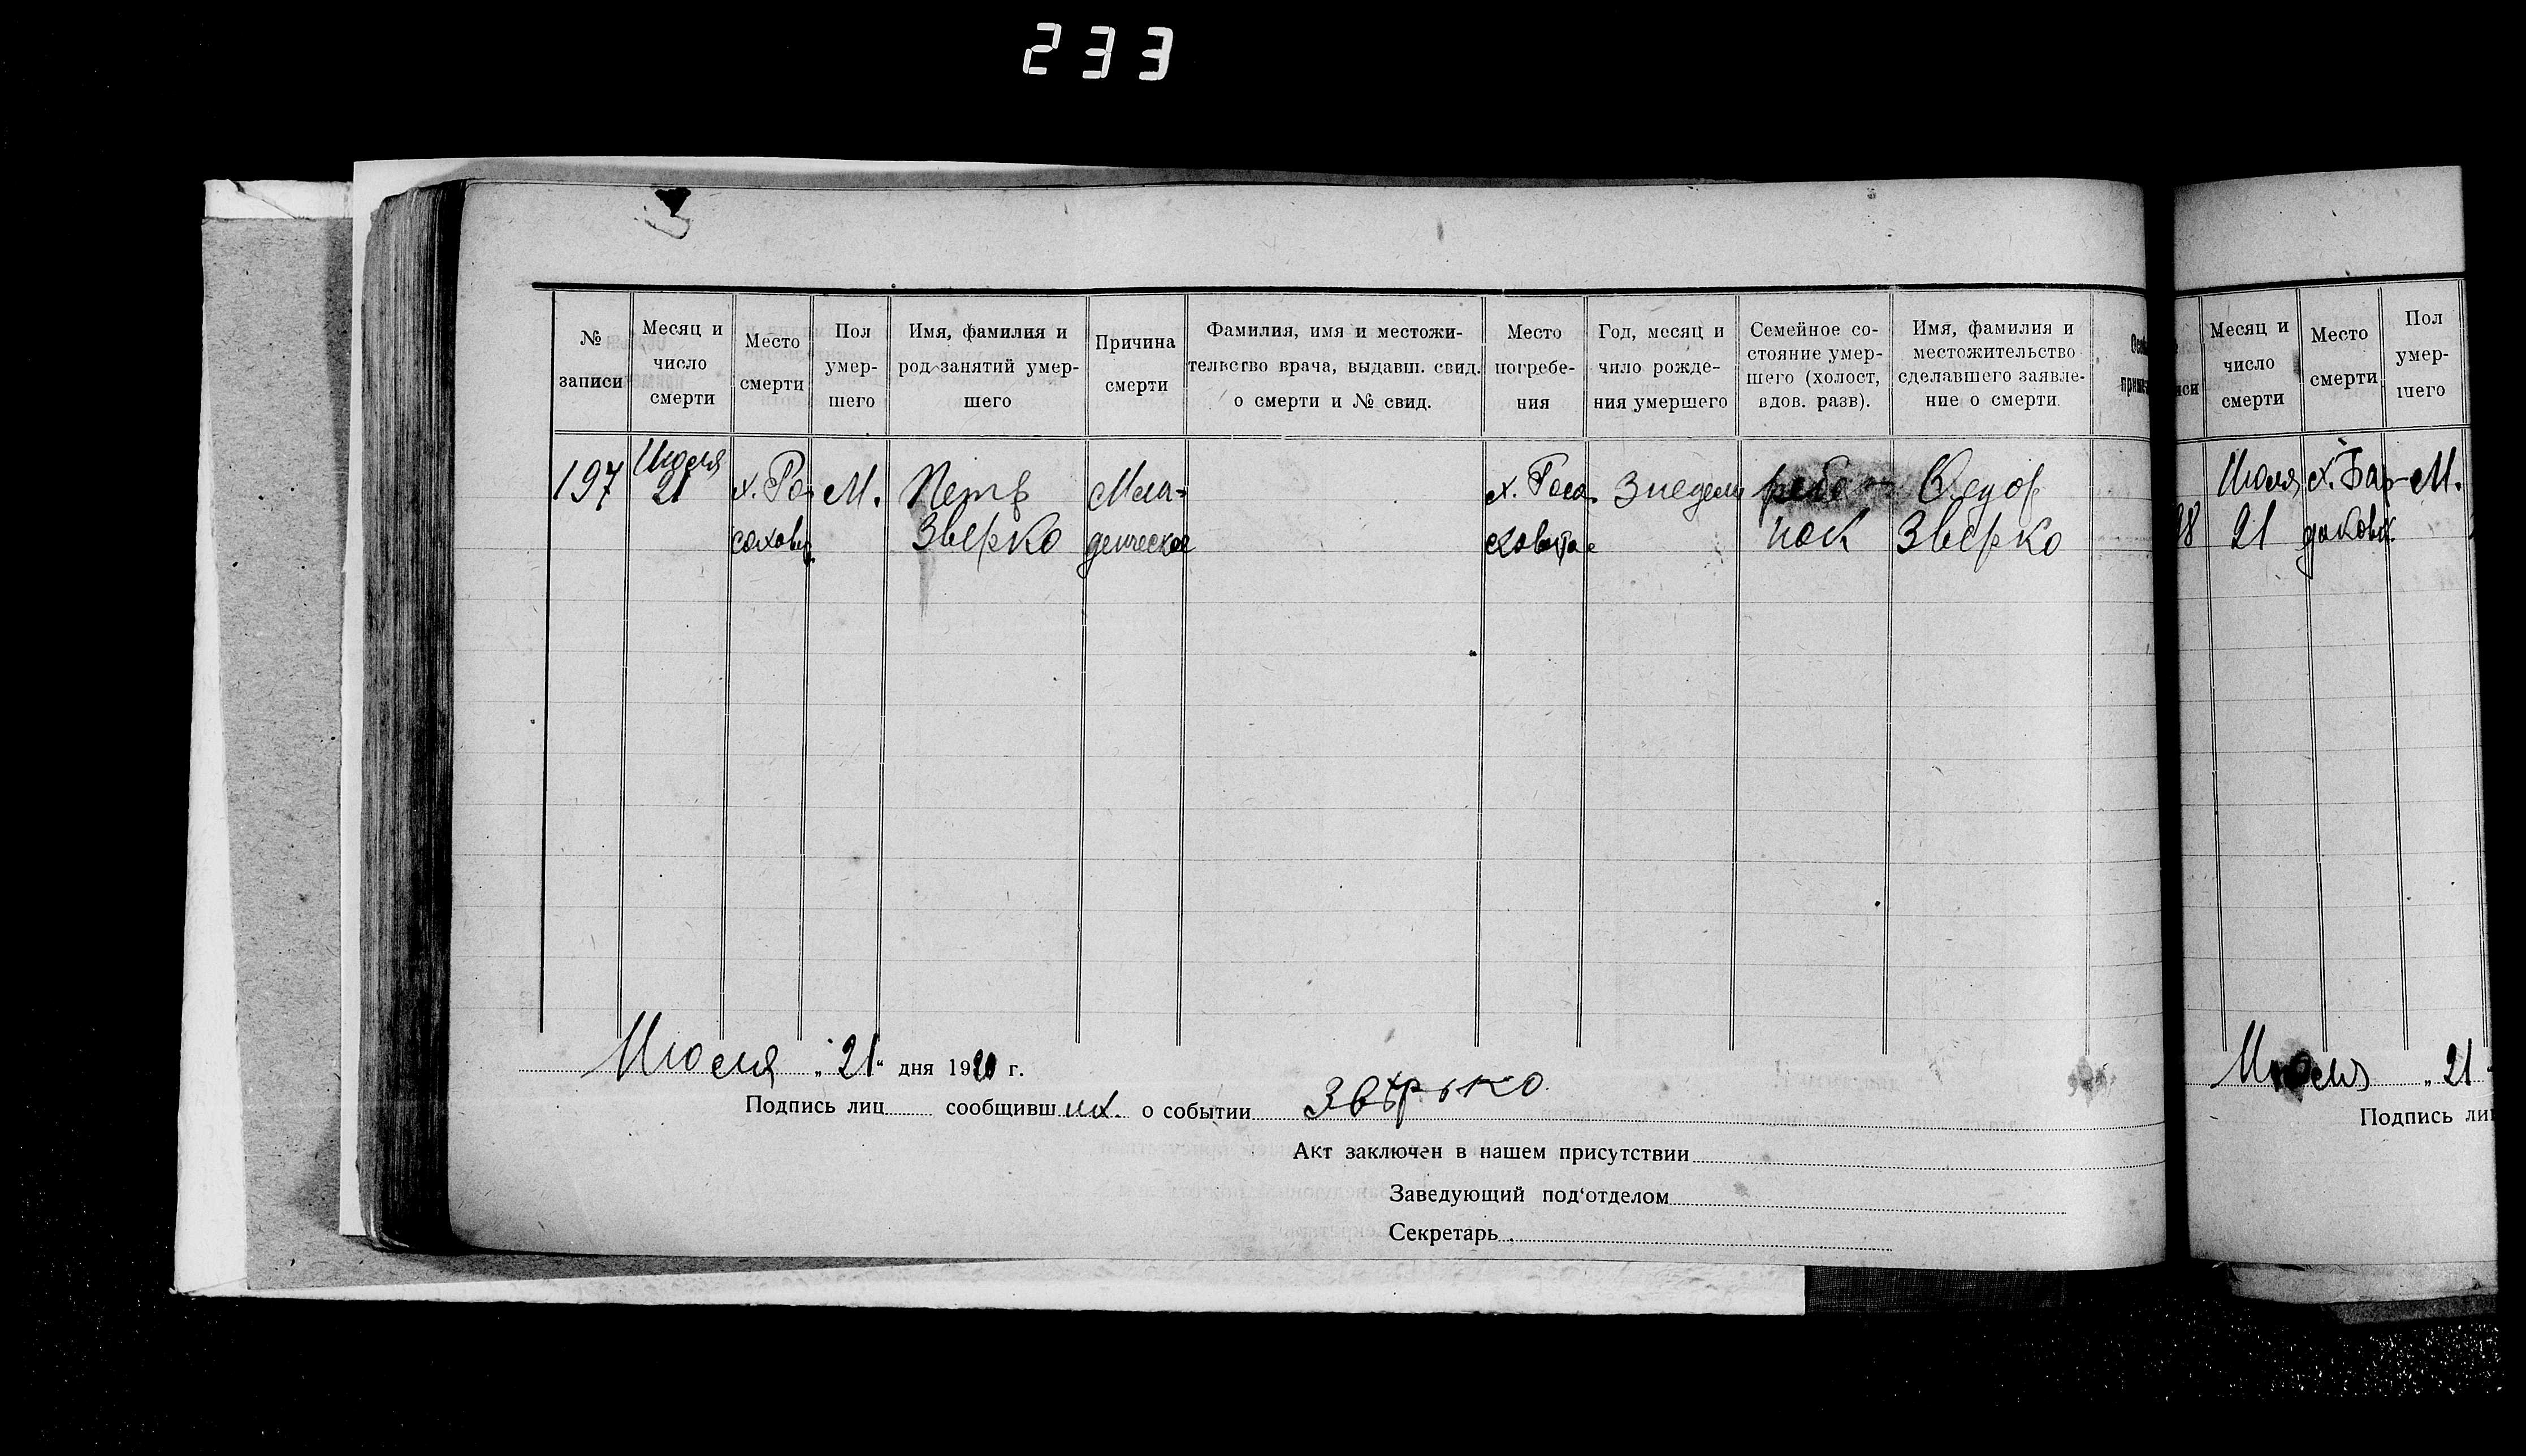 233
№ записи
Месяц и число смерти
Место смерти
Пол умер-шего
Имя, фамилия и род занятий умер-шего
Причина смерти
Фамилия, имя и местожи-тельство врача, выдавш. свид. о смерти и № свид.
Место погребе-ния
Год, месяц и чило рожде-ния умершего
Семейное со-стояние умер-шего (холост, вдов. разв).
Имя, фамилия и местожительство сделавшего заявле-ние о смерти
197
Июля
21
х. Ро-
М.
Петр
Зверко
Мла-
денческая
х. Росо-
3 недели
ребе-
нок
Федор
Зверко
Июля „21“ дня 1920 г.
Подпись лиц сообщивш их о событии Звѣрько
Акт заключен в нашем присутствии
Заведующий под'отделом
Секретарь
Месяц и число смерти
Место смерти
Пол умер-шего
Июля
21
х. Бар-
М.
Июля „21
Подпись